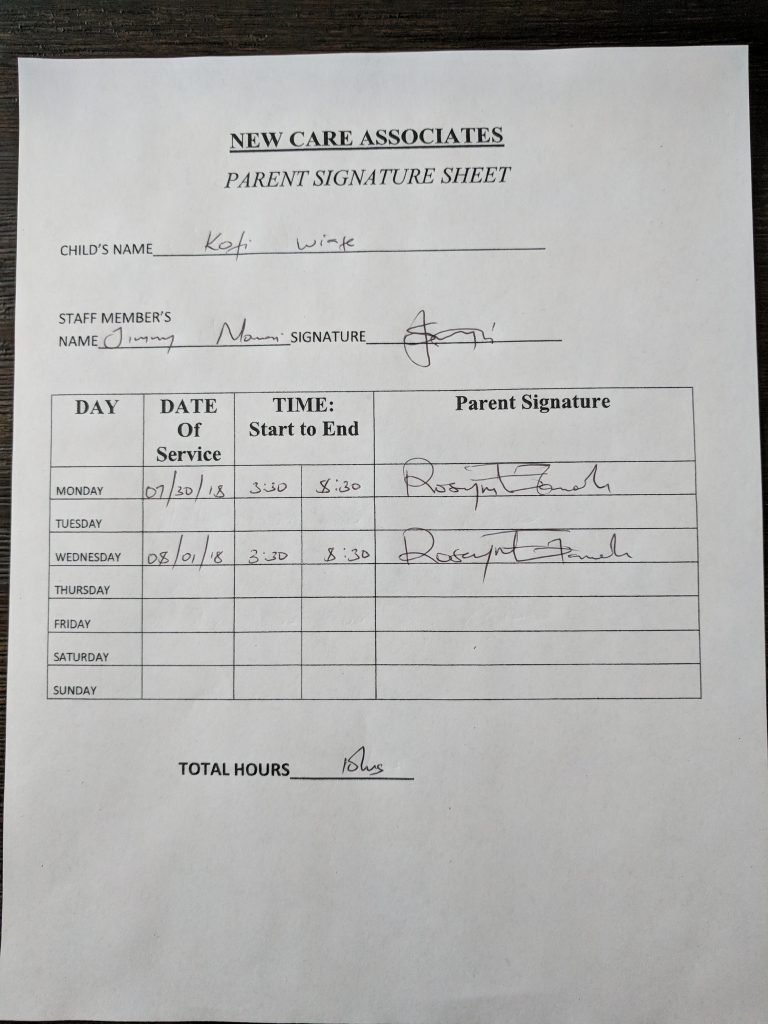 NEW CARE ASSOCIATES
PARENT SIGNATURE SHEET
CHILD'S NAME Kofi
STAFF MEMBER'S
NAME Jimmy SIGNATURE
DAY DATE Of Service TIME: Start to End Parent Signature
MONDAY 07/30/18 3:30 8:30
TUESDAY
WEDNESDAY 08/01/18 3:30 8:30
THURSDAY
FRIDAY
SATURDAY
SUNDAY
TOTAL HOURS 10hrs